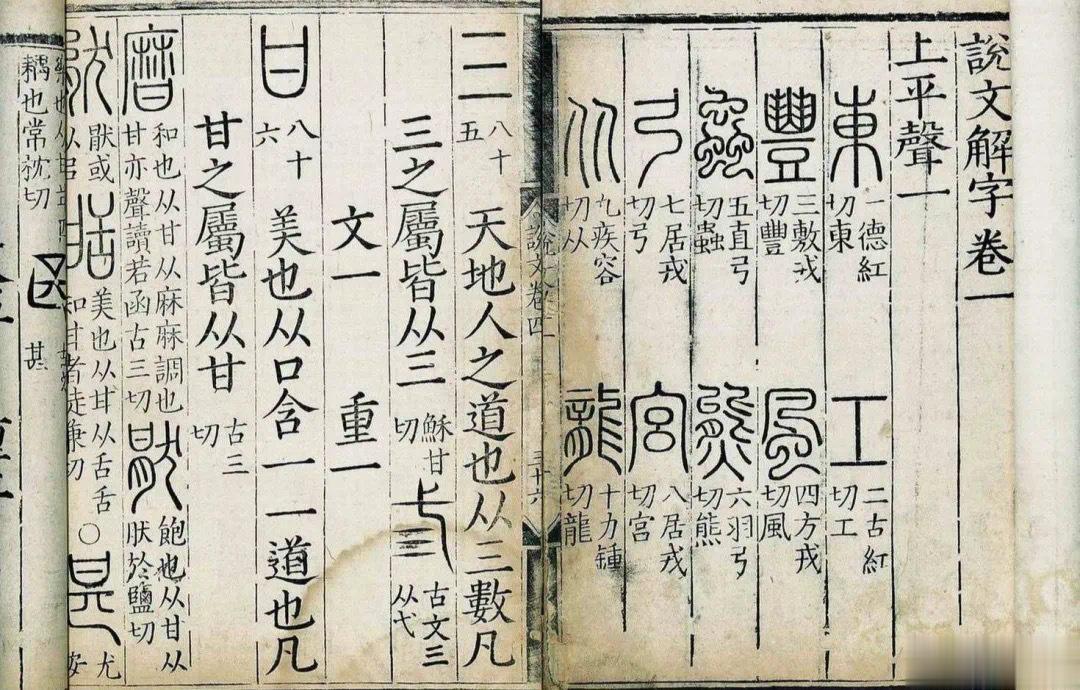 說文解字卷一
上平聲一
東 一德紅切東 工 二古紅切工
豐 三敷戎切豐 風 四方戎切風
蟲 五直弓切蟲 熊 六羽弓切熊
弓 七居戎切弓 宮 八居戎切宮
从 九疾容切从 龍 十力鍾切龍
說文卷四 三十六
三 八十五 天地人之道也从三數凡
三之屬皆从三 穌甘切 弎 古文三从弋
文一 重一
甘 八十六 美也从口含一一道也凡
甘之屬皆从甘 古三切
和也从甘从麻麻調也甘亦聲讀若函古三切 猒 飽也从甘从肰於鹽切
猒或从㠯 甛 美也从甘从舌舌知甘者徒兼切 ○ 甚 尤安
耦也常枕切 甚